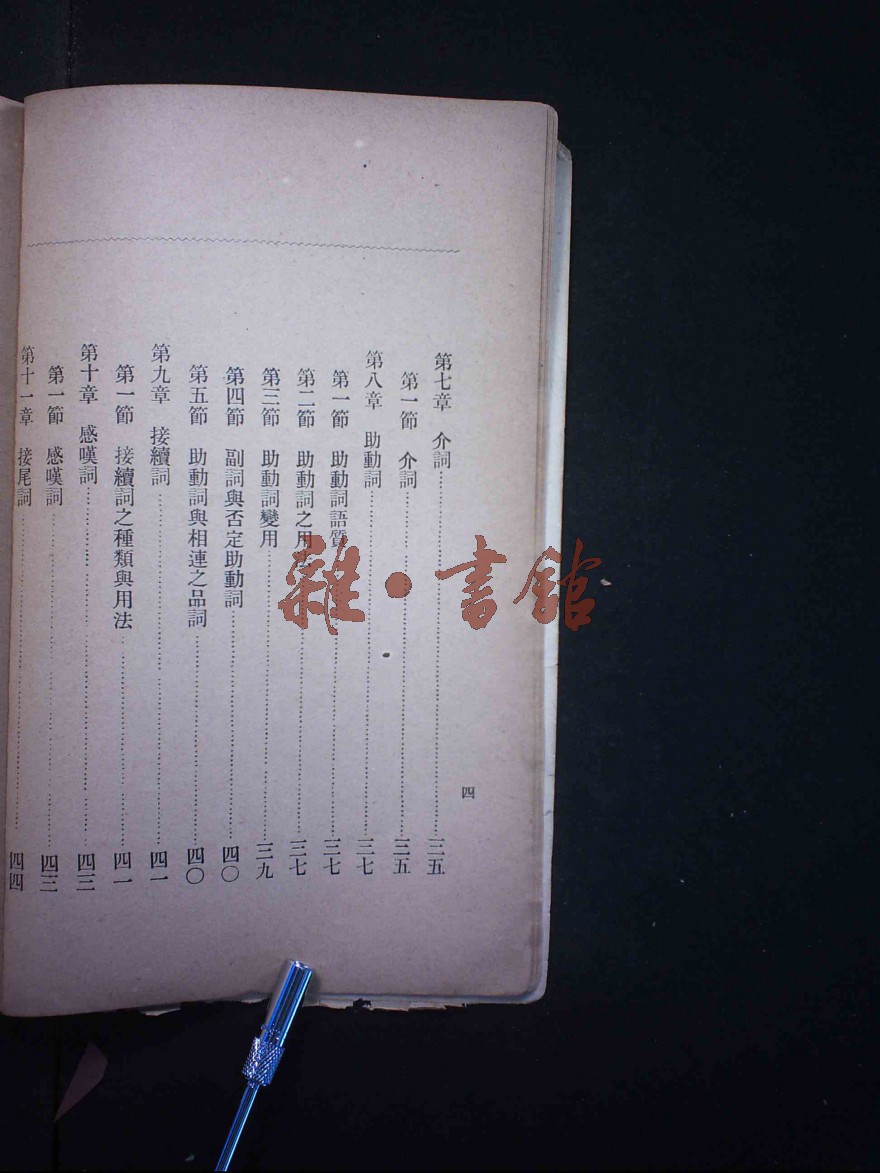 第七章 介詞……三五
第一節 介詞……三五
第八章 助動詞……三七
第一節 助動詞語質……三七
第二節 助動詞之用法……三七
第三節 助動詞變用……三九
第四節 副詞與否定助動詞……四〇
第五節 助動詞與相連之品詞……四〇
第九章 接續詞……四一
第一節 接續詞之種類與用法……四一
第十章 感嘆詞……四三
第一節 感嘆詞……四三
第十一章 接尾詞……四四
四
雜·書館